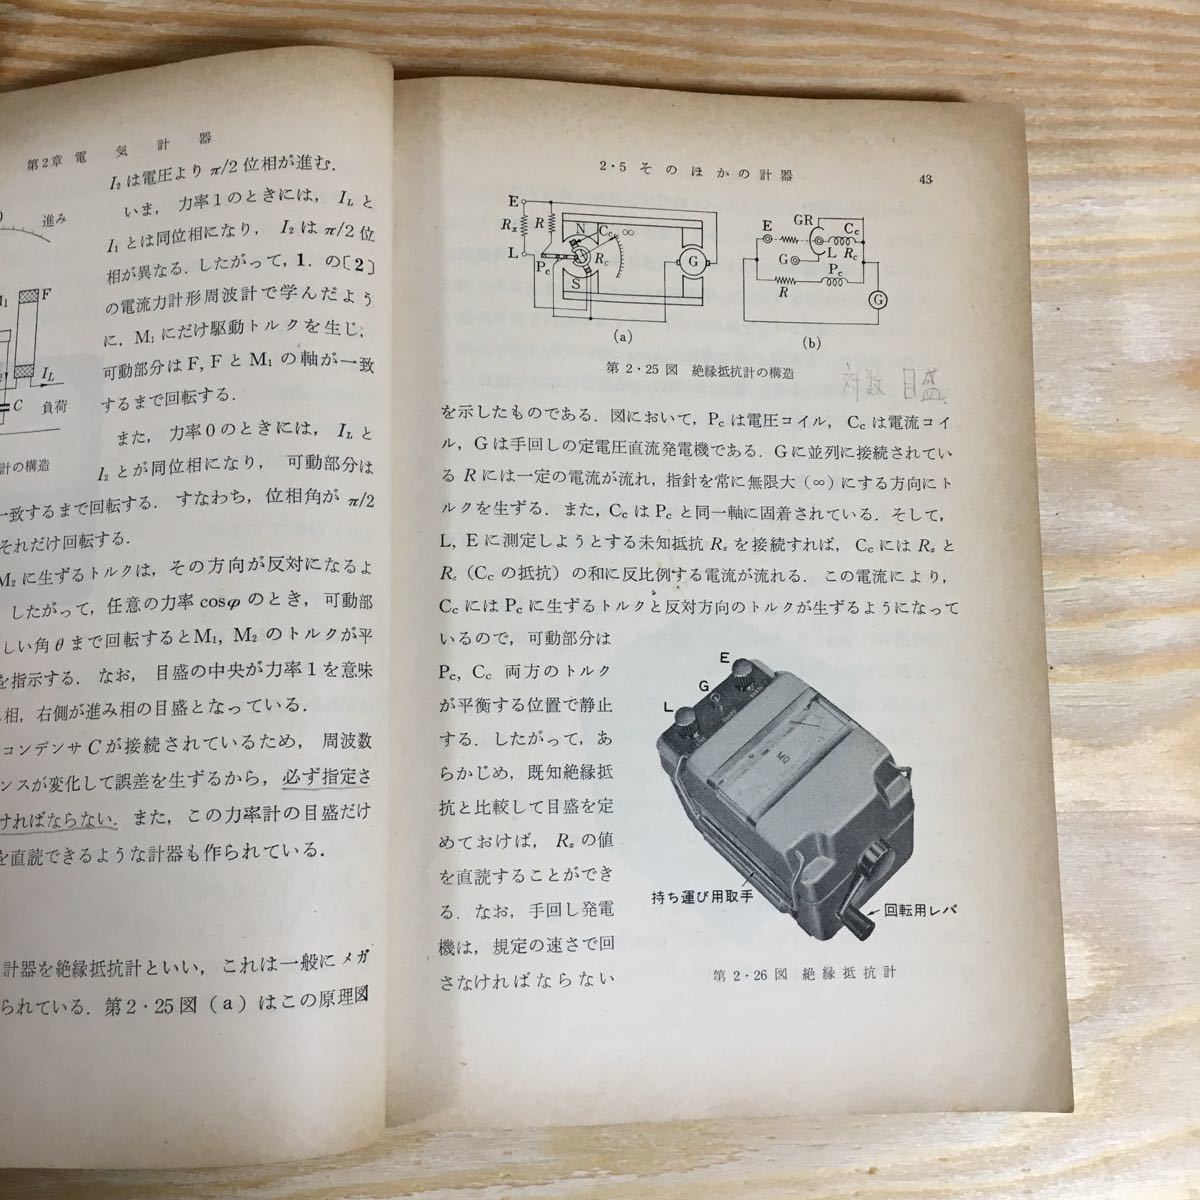 第2章 電気計器
I₂は電圧より π/2 位相が進む.
いま, 力率1のときには, I_L と
I₁とは同位相になり, I₂は π/2 位
相が異なる. したがって, 1. の〔2〕
の電流力計形周波計で学んだよう
に, M₁にだけ駆動トルクを生じ,
可動部分は F, F と M₁ の軸が一致
するまで回転する.
また, 力率0のときには, I_L と
I₂ とが同位相になり, 可動部分は
一致するまで回転する. すなわち, 位相角が π/2
それだけ回転する.
M₂に生ずるトルクは, その方向が反対になるよ
したがって, 任意の力率 cosφ のとき, 可動部
しい角θまで回転するとM₁, M₂のトルクが平
を指示する. なお, 目盛の中央が力率1を意味
相, 右側が進み相の目盛となっている.
コンデンサCが接続されているため, 周波数
ンスが変化して誤差を生ずるから, 必ず指定さ
ければならない. また, この力率計の目盛だけ
を直読できるような計器も作られている.
計器を絶縁抵抗計といい, これは一般にメガ
られている. 第2・25図 (a) はこの原理図
進み
M₁
F
I_L
C
負荷
計の構造
2・5 そのほかの計器
43
E
R_x
R
L
P_c
N
C_c
∞
R_c
S
G
(a)
GR
C_c
E
L
R_c
G
P_c
R
G
(b)
第2・25図 絶縁抵抗計の構造
対数目盛
を示したものである. 図において, P_cは電圧コイル, C_cは電流コイ
ル, Gは手回しの定電圧直流発電機である. Gに並列に接続されてい
る Rには一定の電流が流れ, 指針を常に無限大 (∞) にする方向にト
ルクを生ずる. また, C_cは P_cと同一軸に固着されている. そして,
L, E に測定しようとする未知抵抗 R_x を接続すれば, C_cには R_x と
R_c (C_cの抵抗) の和に反比例する電流が流れる. この電流により,
C_cには P_cに生ずるトルクと反対方向のトルクが生ずるようになって
いるので, 可動部分は
P_c, C_c 両方のトルク
が平衡する位置で静止
する. したがって, あ
らかじめ, 既知絶縁抵
抗と比較して目盛を定
めておけば, R_x の値
を直読することができ
る. なお, 手回し発電
機は, 規定の速さで回
さなければならない
E
G
L
MΩ
持ち運び用取手
回転用レバ
第2・26図 絶縁抵抗計